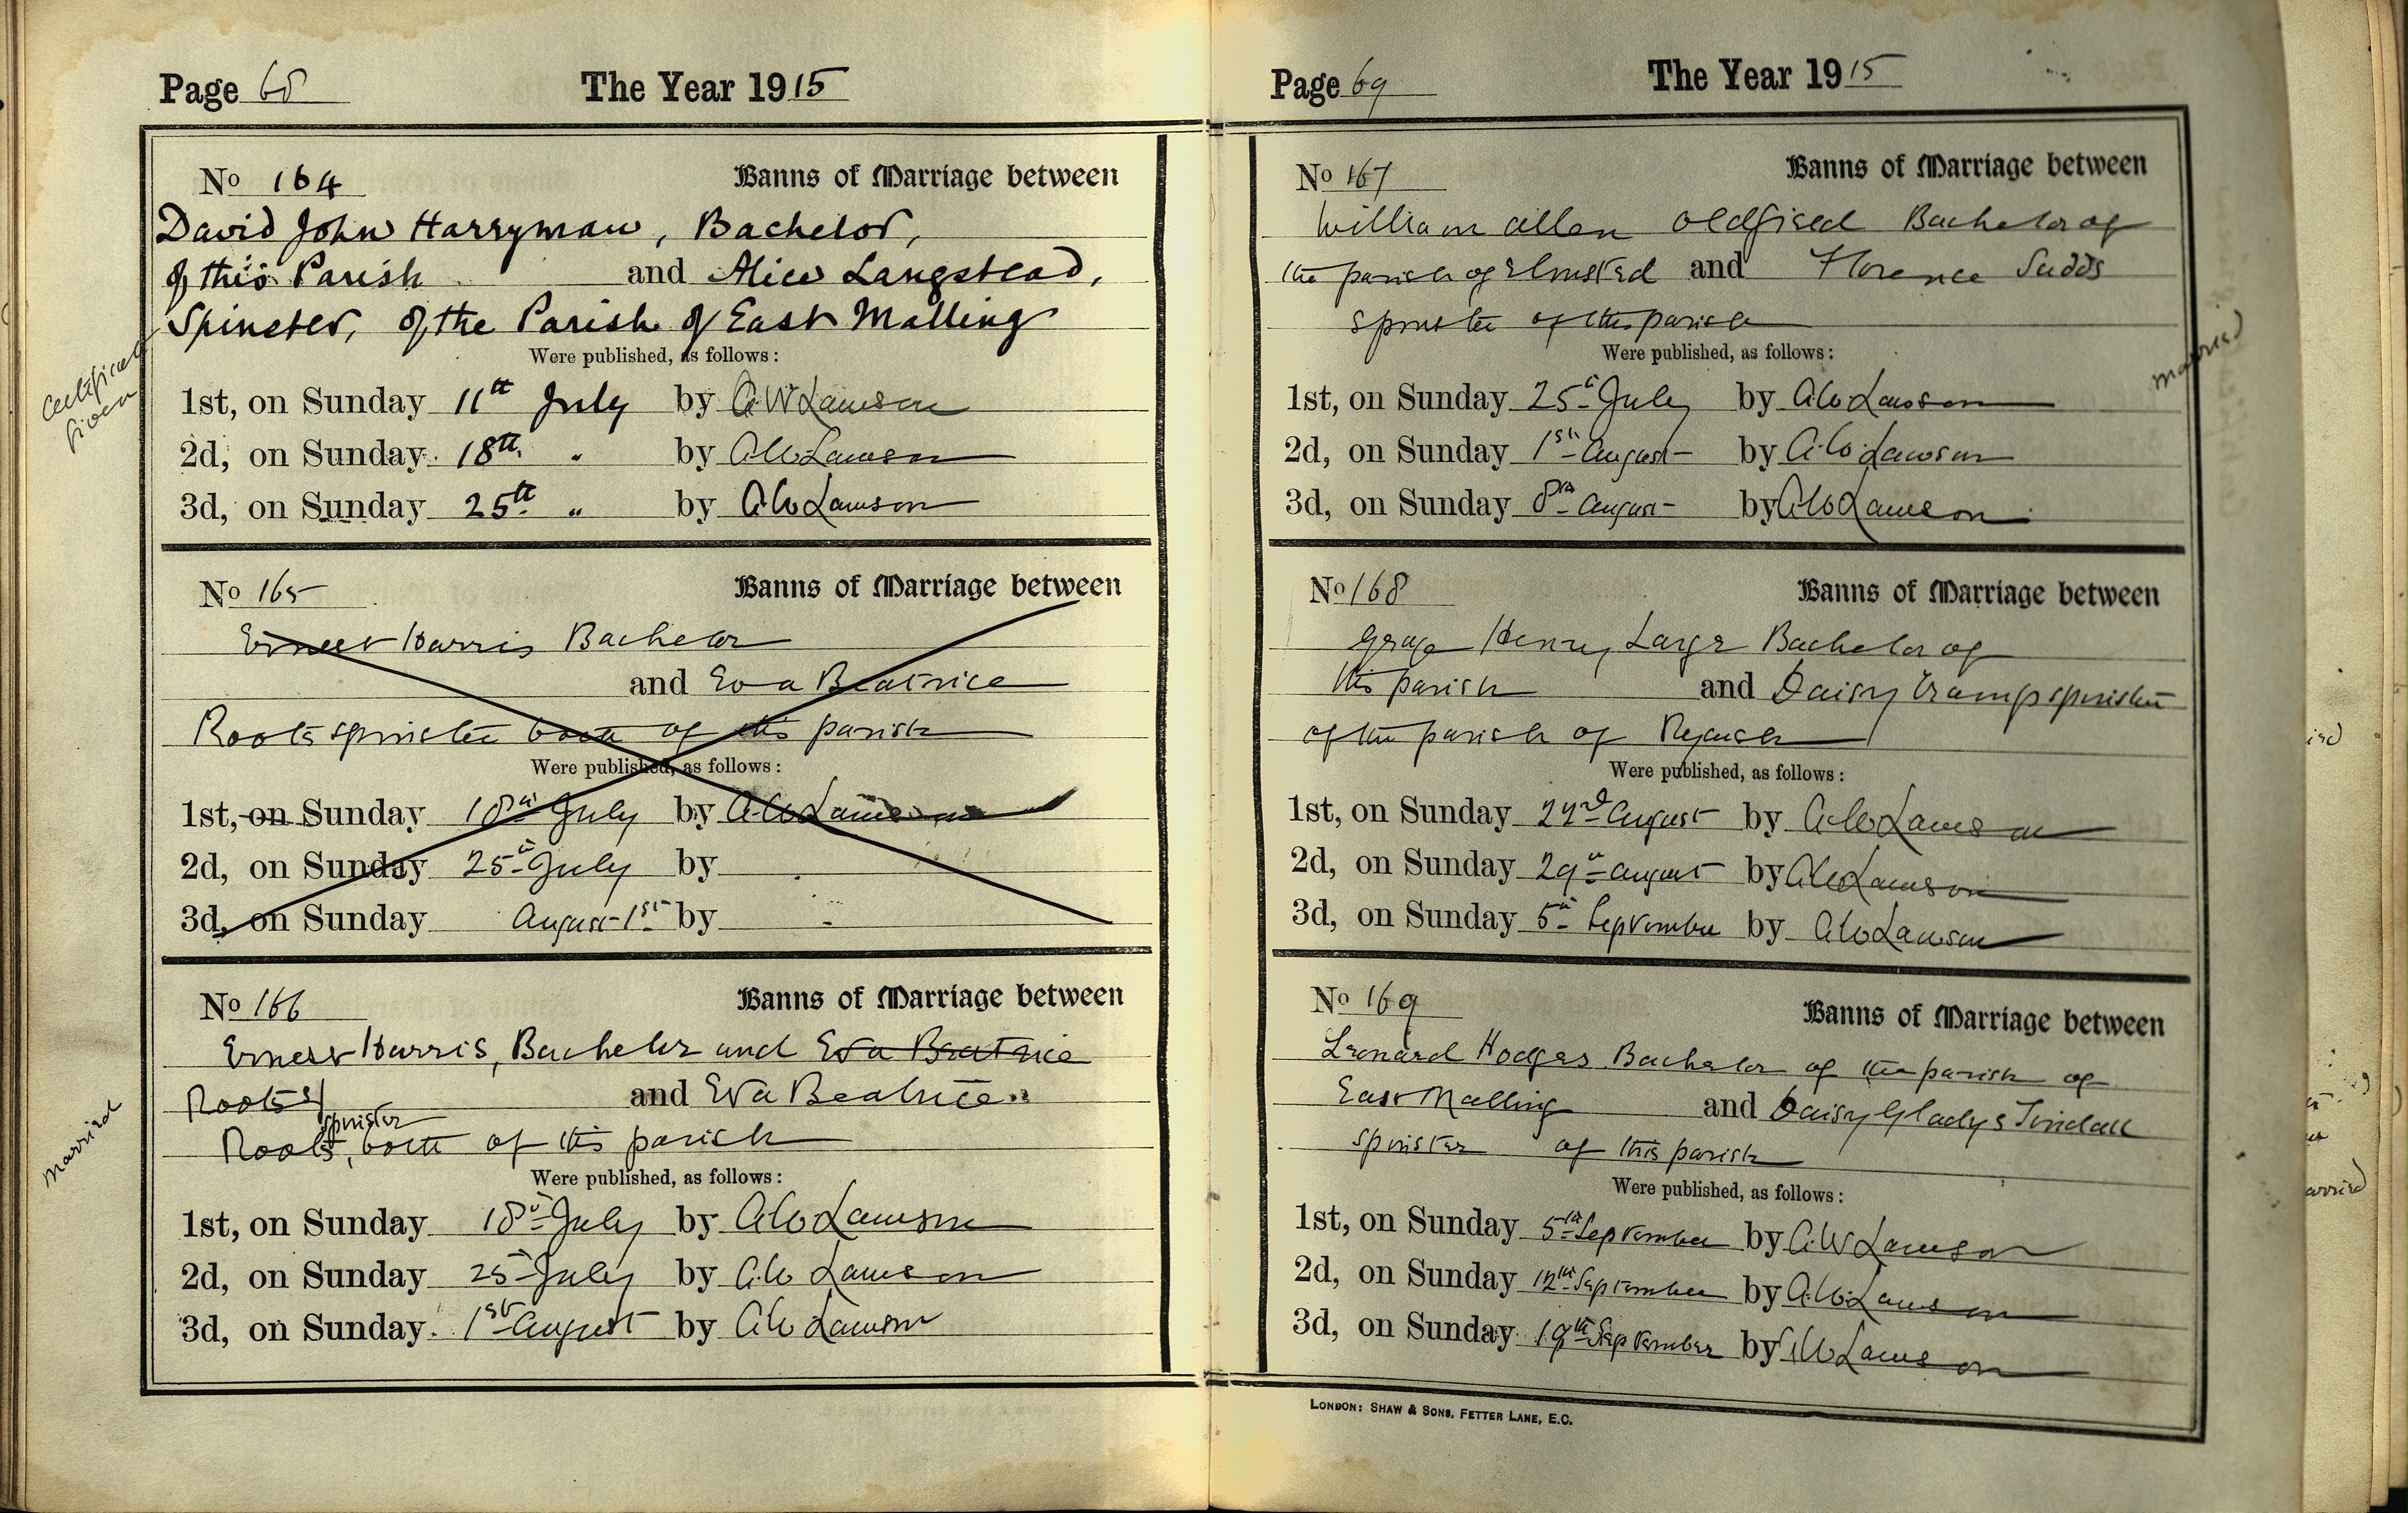 Page 68 The Year 1915
No 164 Banns of Marriage between
David John Harryman, Bachelor,
of this Parish and Alice Langstead,
Spinster, of the Parish of East Malling
Were published, as follows:
Certificate
given
1st, on Sunday 11th July by A W Lawson
2d, on Sunday 18th " by A W Lawson
3d, on Sunday 25th " by A W Lawson
No 165 Banns of Marriage between
Ernest Harris Bachelor
and Eva Beatrice
Roots spinster both of this parish
Were published, as follows:
1st, on Sunday 18th July by A W Lawson
2d, on Sunday 25th July by
3d, on Sunday August 1st by
No 166 Banns of Marriage between
Ernest Harris, Bachelor and Eva Beatrice
Roots and Eva Beatrice
spinster
Roots, both of this parish
Were published, as follows:
married
1st, on Sunday 18th July by A W Lawson
2d, on Sunday 25th July by A.W Lawson
3d, on Sunday 1st August by A W Lawson
Page 69 The Year 1915
No 167 Banns of Marriage between
William Allen Oldfield Bachelor of
the parish of Elmsted and Florence Sudds
spinster of this parish
Were published, as follows:
married
1st, on Sunday 25th July by A W Lawson
2d, on Sunday 1st August by A W Lawson
3d, on Sunday 8th August by A W Lawson
No 168 Banns of Marriage between
George Henry Large Bachelor of
this parish and Daisy Cramp spinster
of the parish of Ryarsh
Were published, as follows:
1st, on Sunday 22nd August by A W Lawson
2d, on Sunday 29th August by A W Lawson
3d, on Sunday 5th September by A W Lawson
No 169 Banns of Marriage between
Leonard Hodges Bachelor of the parish of
East Malling and Daisy Gladys Tindall
spinster of this parish
Were published, as follows:
1st, on Sunday 5th September by A.W Lawson
2d, on Sunday 12th September by A.W. Lawson
3d, on Sunday 19th September by A W Lawson
LONDON: SHAW & SONS, FETTER LANE, E.C.